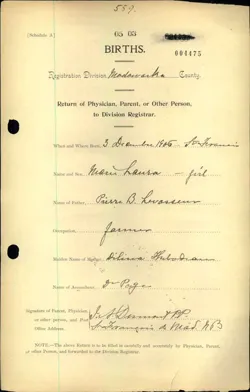 559.
(Schedule A
65 03
BIRTHS.
004475
Registration Division, Madawaska County.
Return of Physician, Parent, or Other Person,
to Division Registrar.
When and Where Born, 3 December 1905 St Francis
Name and Sex, Marie Laura - girl
Name of Father, Pierre B. Levasseur
Occupation, farmer
Maiden Name of Mother,
Name of Accoucheur, Dr
Signature of Parent, Physician,
or other person, and Post
Office Address, St François de Mad. N B
NOTE.—The above Return to be filled in carefully and accurately by Physician, Parent,
or other Person, and forwarded to the Division Registrar.